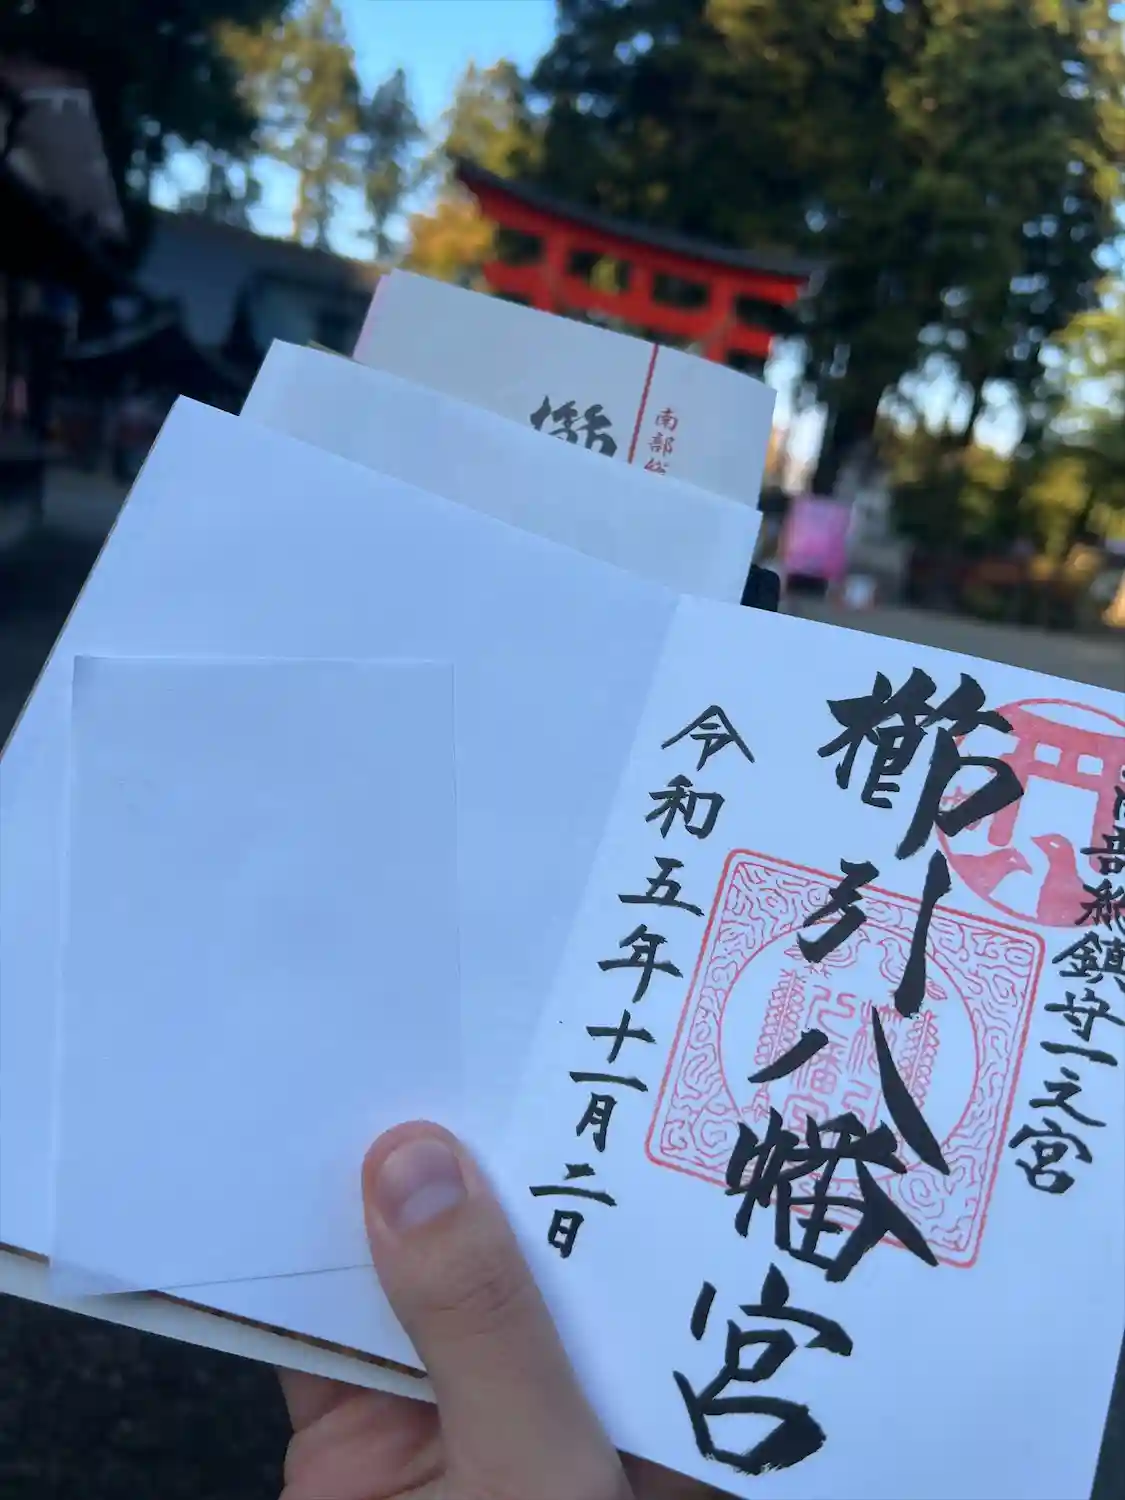 南部総鎮守一之宮
櫛引八幡宮
令和五年十一月二日
南部総
櫛